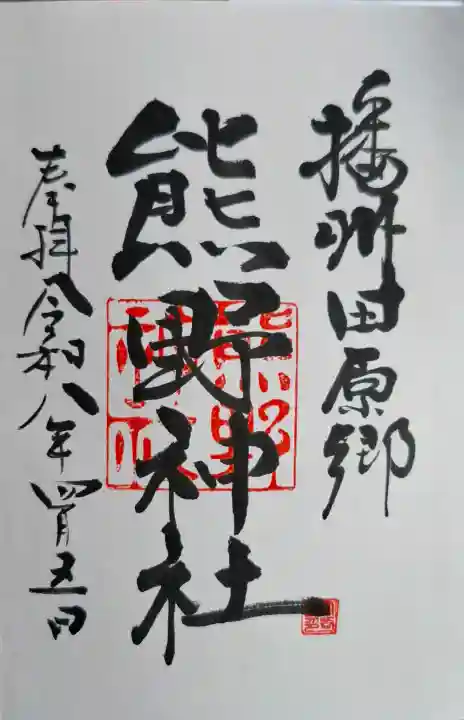 播州田原郷
熊野神社
奉拝令和八年四月五日
熊野
神社